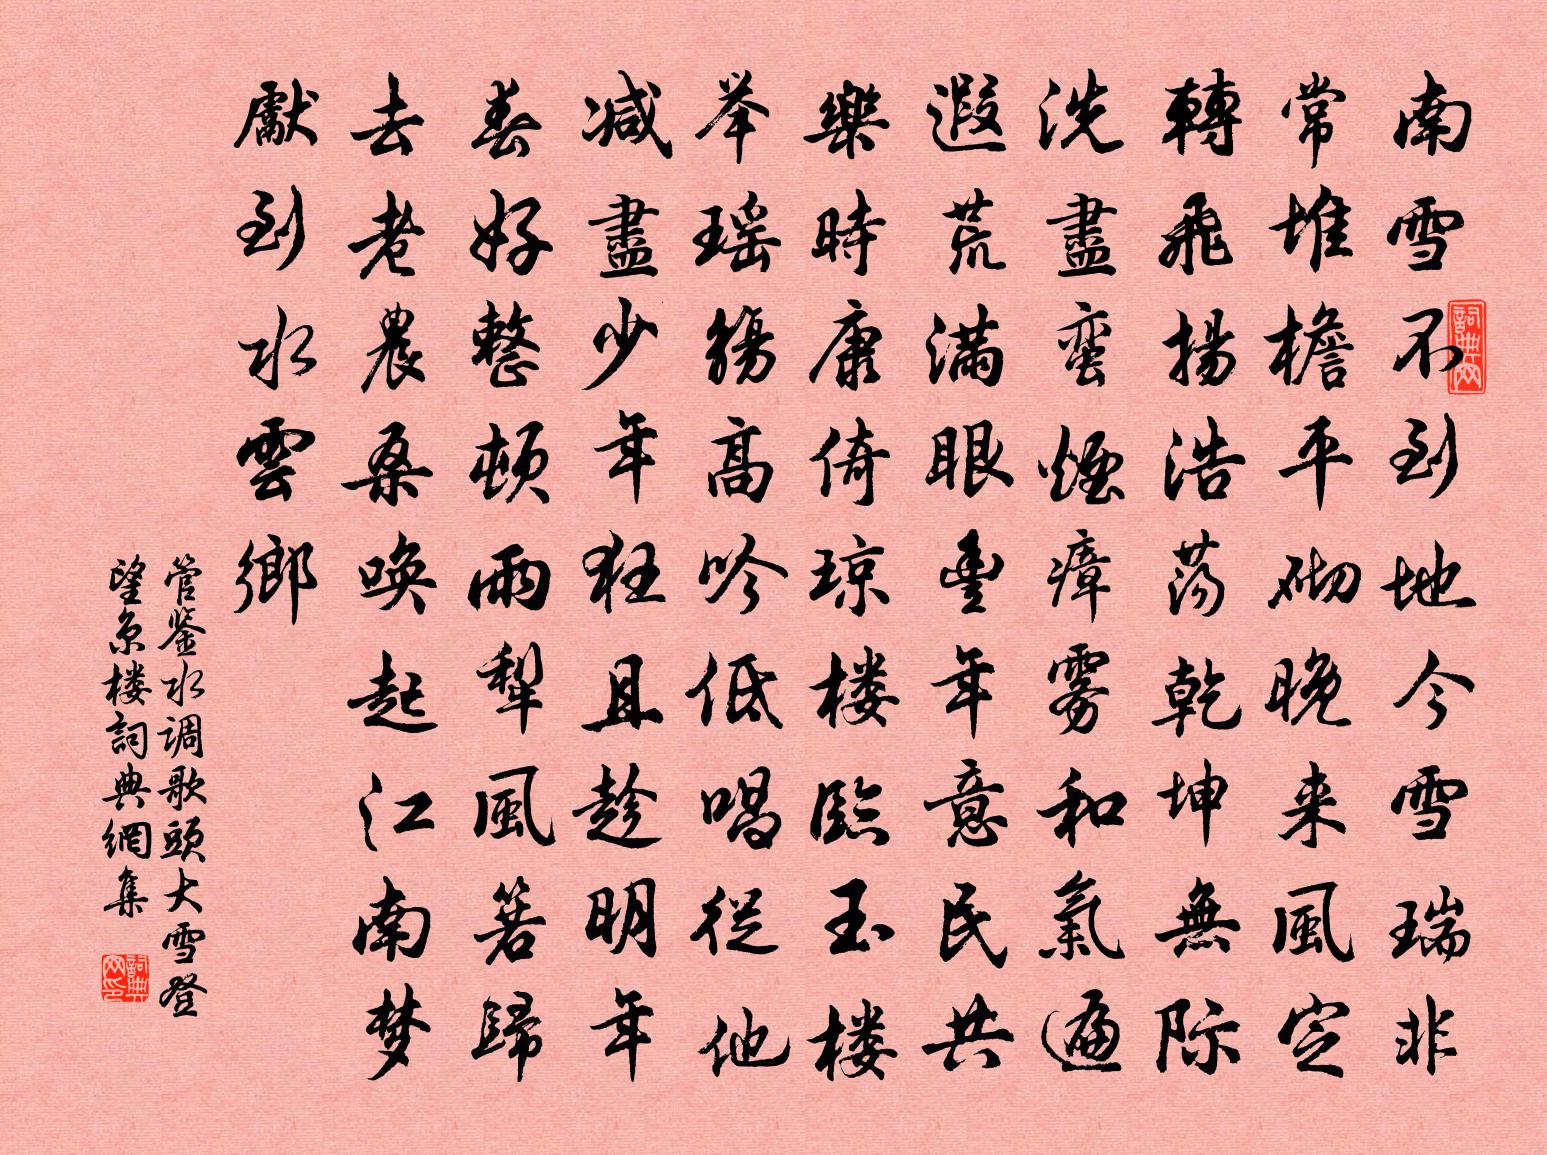 南雪不到地今雪瑞非
常堆檐平砌晚来風定
轉飛揚浩荡乾坤無际
洗盡蛮煙瘴雾和氣遍
遐荒满眼豊年意民共
樂時康倚琼楼臨玉楼
举瑶觞高吟低唱從他
减盡少年狂且趁明年
春好整顿雨犁風箬歸
去老農桑唤起江南梦
獻到水雲鄉
管鉴水调歌頭大雪登
望京楼詞典網集
詞典网
詞典网印